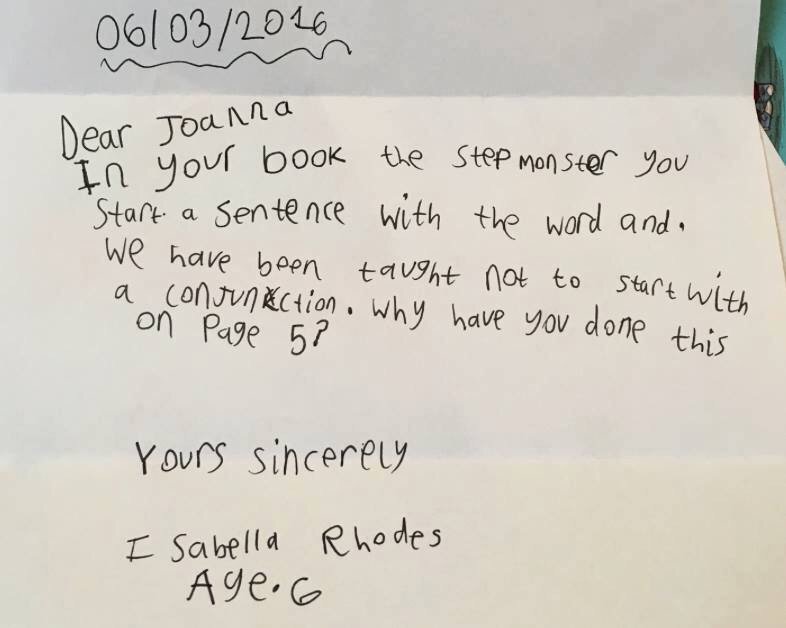 06/03/2016
Dear Joanna
In your book the stepmonster you
Start a sentence with the word and.
We have been taught not to start with
a conjunction. Why have you done this
on Page 5?
Yours sincerely
Isabella Rhodes
Age. 6